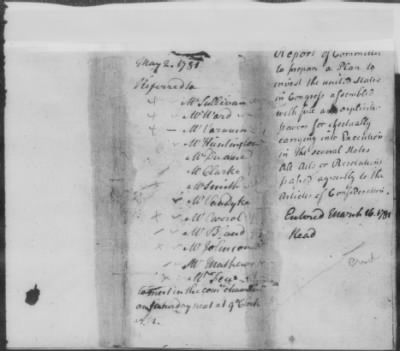 May 2. 1781
Referred to
Mr Sullivan
Mr Ward
Mr Varnum
Mr Huntington
Mr Duane
Mr Clarke
Mr Smith
Mr Vandyke
Mr Carrol
Mr Bland
Mr Johnson
Mr Mathews
Mr
to meet in the
on Saturday next at 9
Report of Committee
to prepare a Plan to
invest the united States
in Congress assembled
with full and explicit
powers for effectually
carrying into Execution
in the several States
all Acts or Resolutions
passed agreeably to the
Articles of Confederation.
Entered March 16. 1781
Read